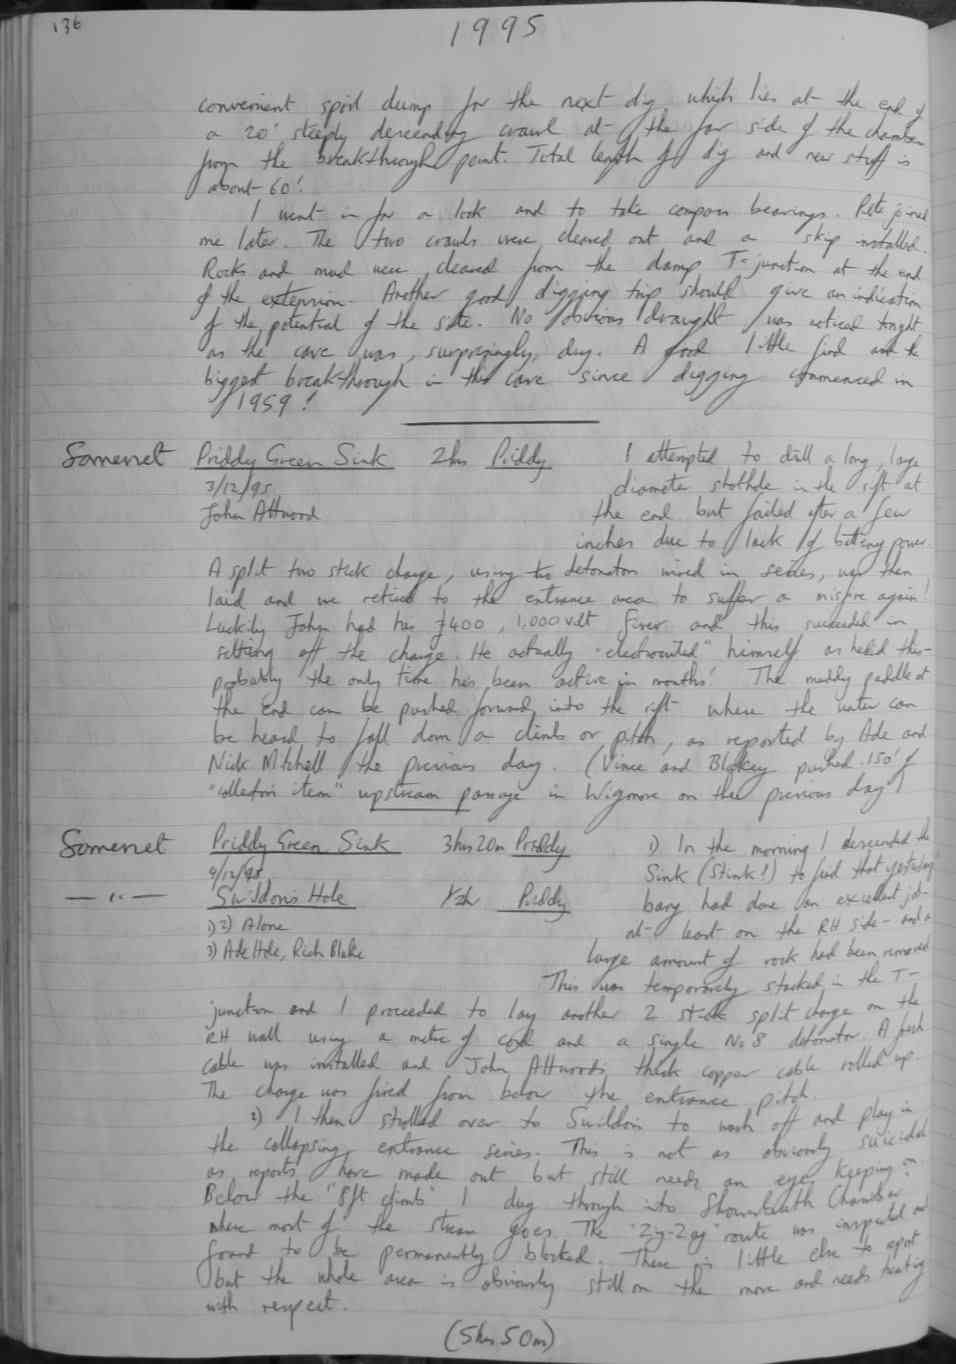 136
1995
convenient spoil dump for the next dig which lies at the end of
a 20' steeply descending crawl at the far side of the chamber
from the breakthrough point. Total length of dig and new stuff is
about 60'.
I went in for a look and to take compass bearings. Pete joined
me later. The two crawls were cleared out and a skip installed.
Rocks and mud were cleared from the damp T-junction at the end
of the extension. Another good digging trip should give an indication
of the potential of the site. No obvious draught was noticed tonight
as the cave was, surprisingly, dry. A good little find and the
biggest breakthrough in this cave since digging commenced in
1959!
Somerset Priddy Green Sink 2hrs Priddy I attempted to drill a long, large
3/12/95 diameter shothole in the rift at
John Attwood the end but failed after a few
inches due to lack of battery power.
A split two stick charge, using two detonators wired in series, was then
laid and we retired to the entrance area to suffer a misfire again!
Luckily John had his £400, 1,000 volt firer and this succeeded in
setting off the charge. He actually "electrocuted" himself as he did this -
probably the only time he's been active in months! The muddy puddle at
the end can be pushed forward into the rift where the water can
be heard to fall down a climb or pitch, as reported by Ade and
Nick Mitchell the previous day. (Vince and Blakey pushed 150' of
"collectors item" upstream passage in Wigmore on the previous day)
Somerset Priddy Green Sink 3hrs 20m Priddy 1) In the morning I descended the
9/12/95 Sink (Stink!) to find that yesterday's
— " — Swildons Hole ½hr Priddy bang had done an excellent job -
1) 2) Alone at least on the RH side - and a
3) Ade Hole, Rich Blake large amount of rock had been removed
This was temporarily stacked in the T-
junction and I proceeded to lay another 2 stick split charge on the
RH wall using a metre of cord and a single No 8 detonator. A fresh
cable was installed and John Attwood's thick copper cable rolled up.
The charge was fired from below the entrance pitch.
2) I then strolled over to Swildon's to wash off and play in
the collapsing entrance series. This is not as obviously suicidal
as reports have made out but still needs an eye keeping on.
Below the "8ft climb" I dug through into Showerbath Chamber
where most of the stream goes. The "Zig-Zag" route was inspected and
found to be permanently blocked. There is little else to report
but the whole area is obviously still on the move and needs treating
with respect.
(5hrs 50m)